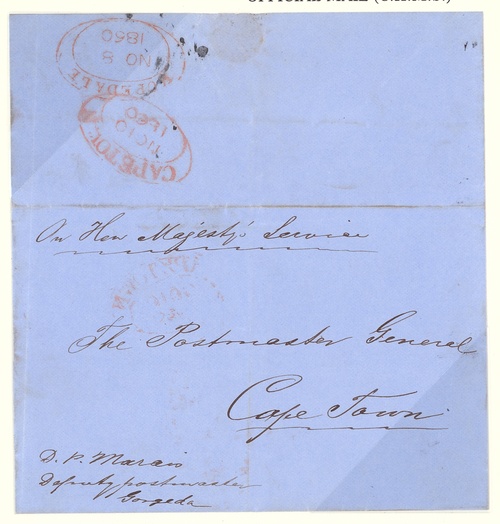 OFFICIAL MAIL
1860
NO 8
1860
CAPE TOW
On Her Majesty's Service
The Postmaster General
Cape Town
D. P. Marais
Deputy postmaster